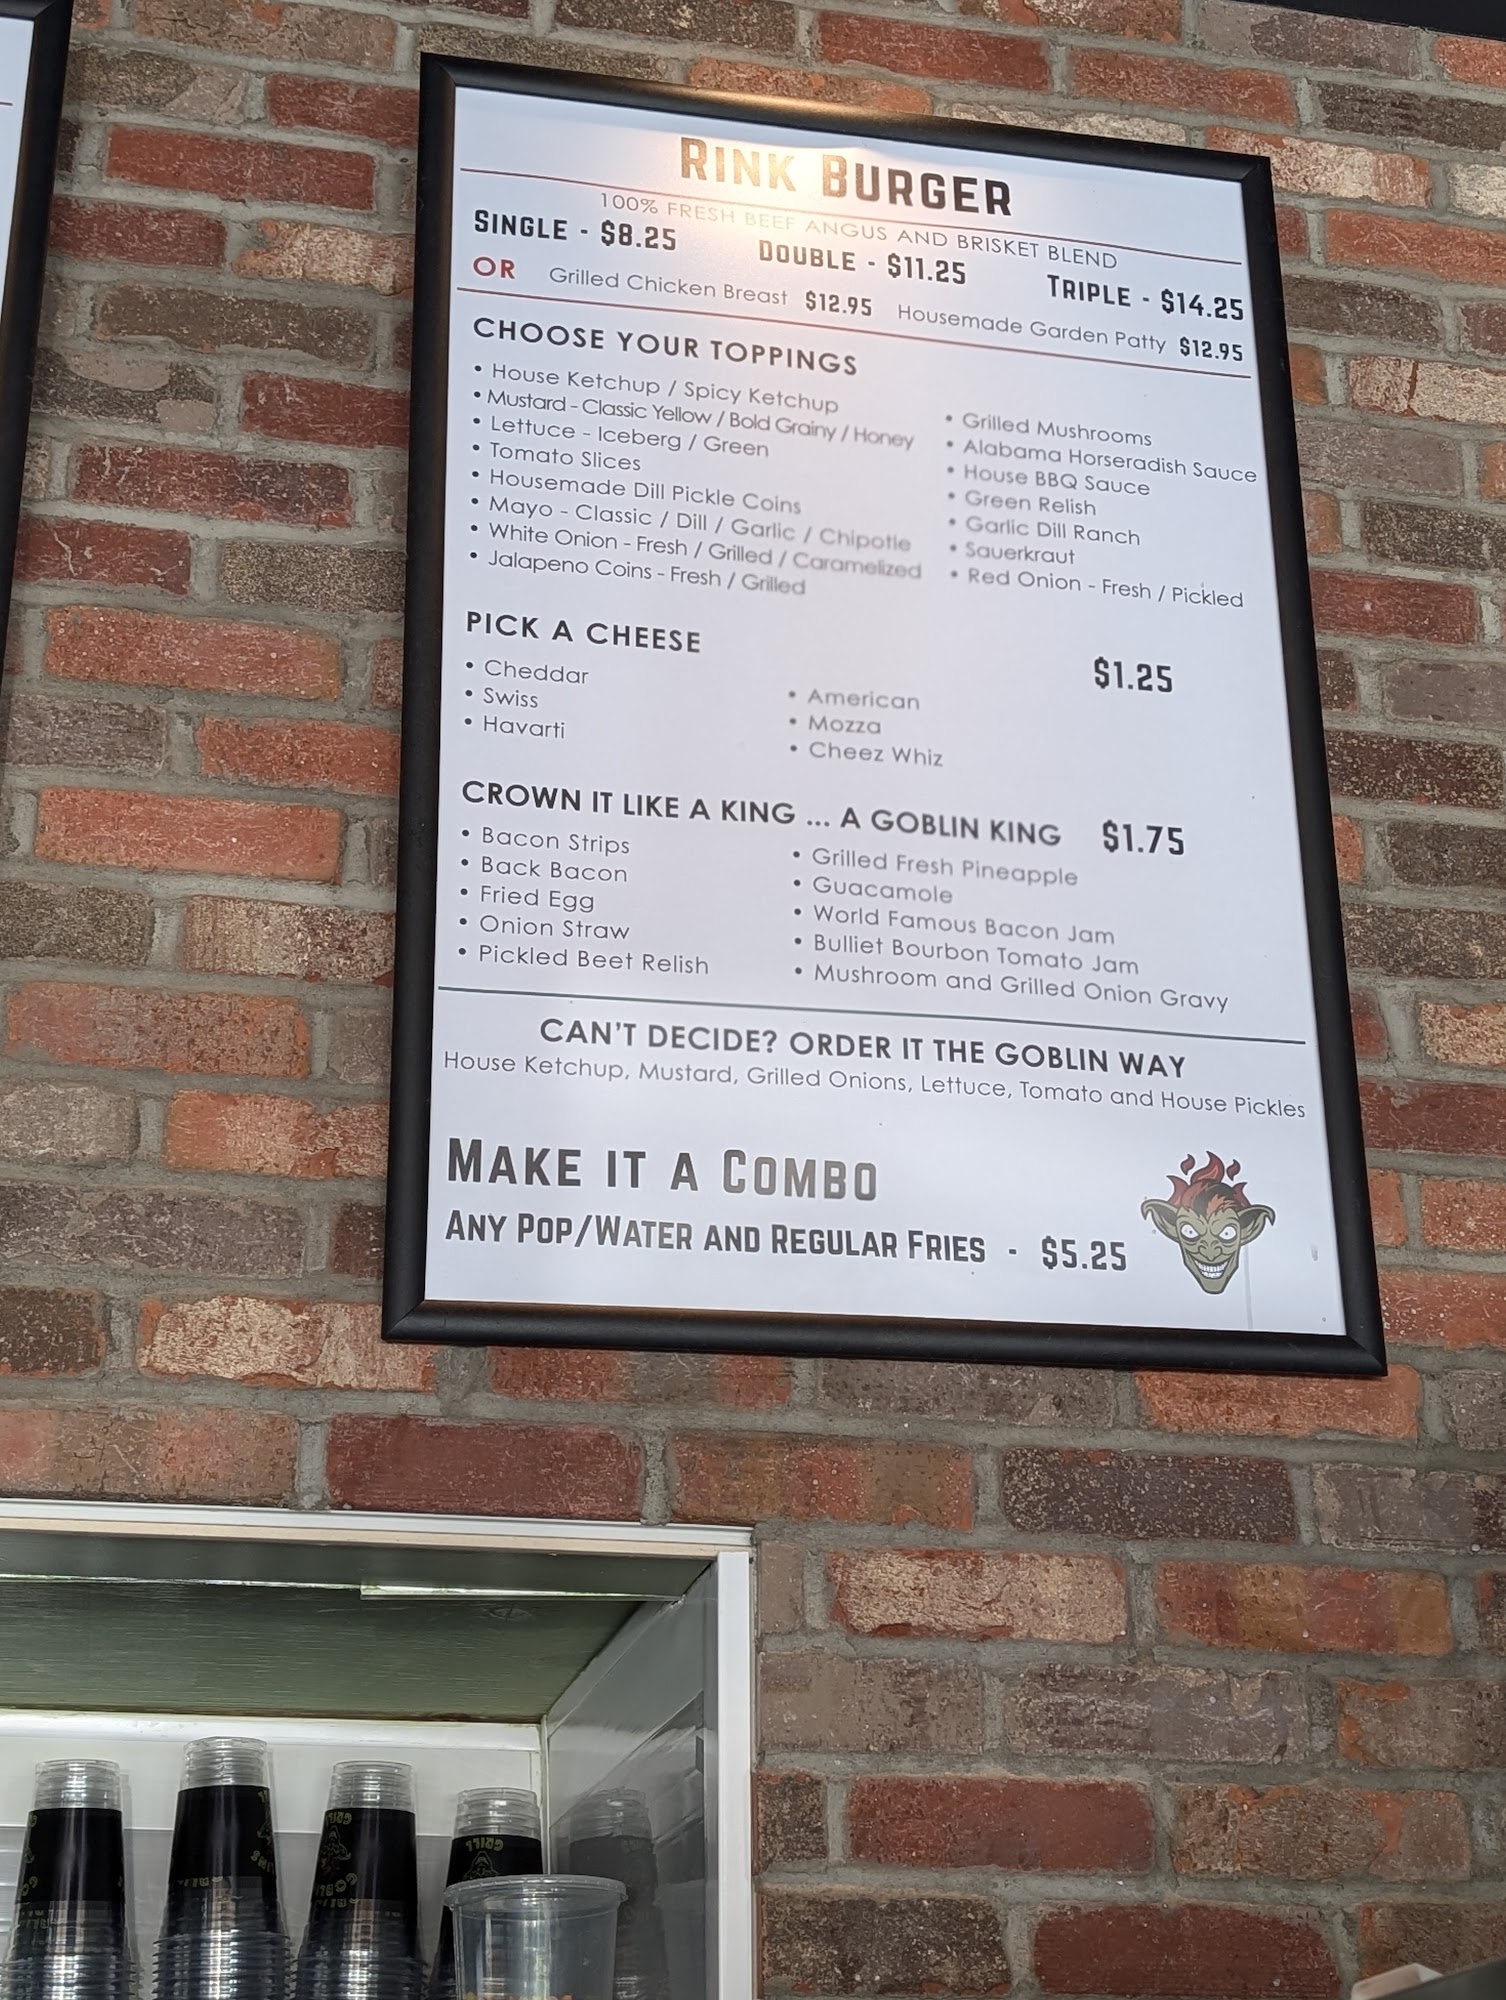 RINK BURGER
100% FRESH BEEF ANGUS AND BRISKET BLEND
SINGLE - $8.25 DOUBLE - $11.25 TRIPLE - $14.25
OR Grilled Chicken Breast $12.95 Housemade Garden Patty $12.95
CHOOSE YOUR TOPPINGS
• House Ketchup / Spicy Ketchup
• Mustard - Classic Yellow / Bold Grainy / Honey
• Lettuce - Iceberg / Green
• Tomato Slices
• Housemade Dill Pickle Coins
• Mayo - Classic / Dill / Garlic / Chipotle
• White Onion - Fresh / Grilled / Caramelized
• Jalapeno Coins - Fresh / Grilled
• Grilled Mushrooms
• Alabama Horseradish Sauce
• House BBQ Sauce
• Green Relish
• Garlic Dill Ranch
• Sauerkraut
• Red Onion - Fresh / Pickled
PICK A CHEESE $1.25
• Cheddar
• Swiss
• Havarti
• American
• Mozza
• Cheez Whiz
CROWN IT LIKE A KING ... A GOBLIN KING $1.75
• Bacon Strips
• Back Bacon
• Fried Egg
• Onion Straw
• Pickled Beet Relish
• Grilled Fresh Pineapple
• Guacamole
• World Famous Bacon Jam
• Bulliet Bourbon Tomato Jam
• Mushroom and Grilled Onion Gravy
CAN'T DECIDE? ORDER IT THE GOBLIN WAY
House Ketchup, Mustard, Grilled Onions, Lettuce, Tomato and House Pickles
MAKE IT A COMBO
ANY POP/WATER AND REGULAR FRIES - $5.25
GRILL
GRILL